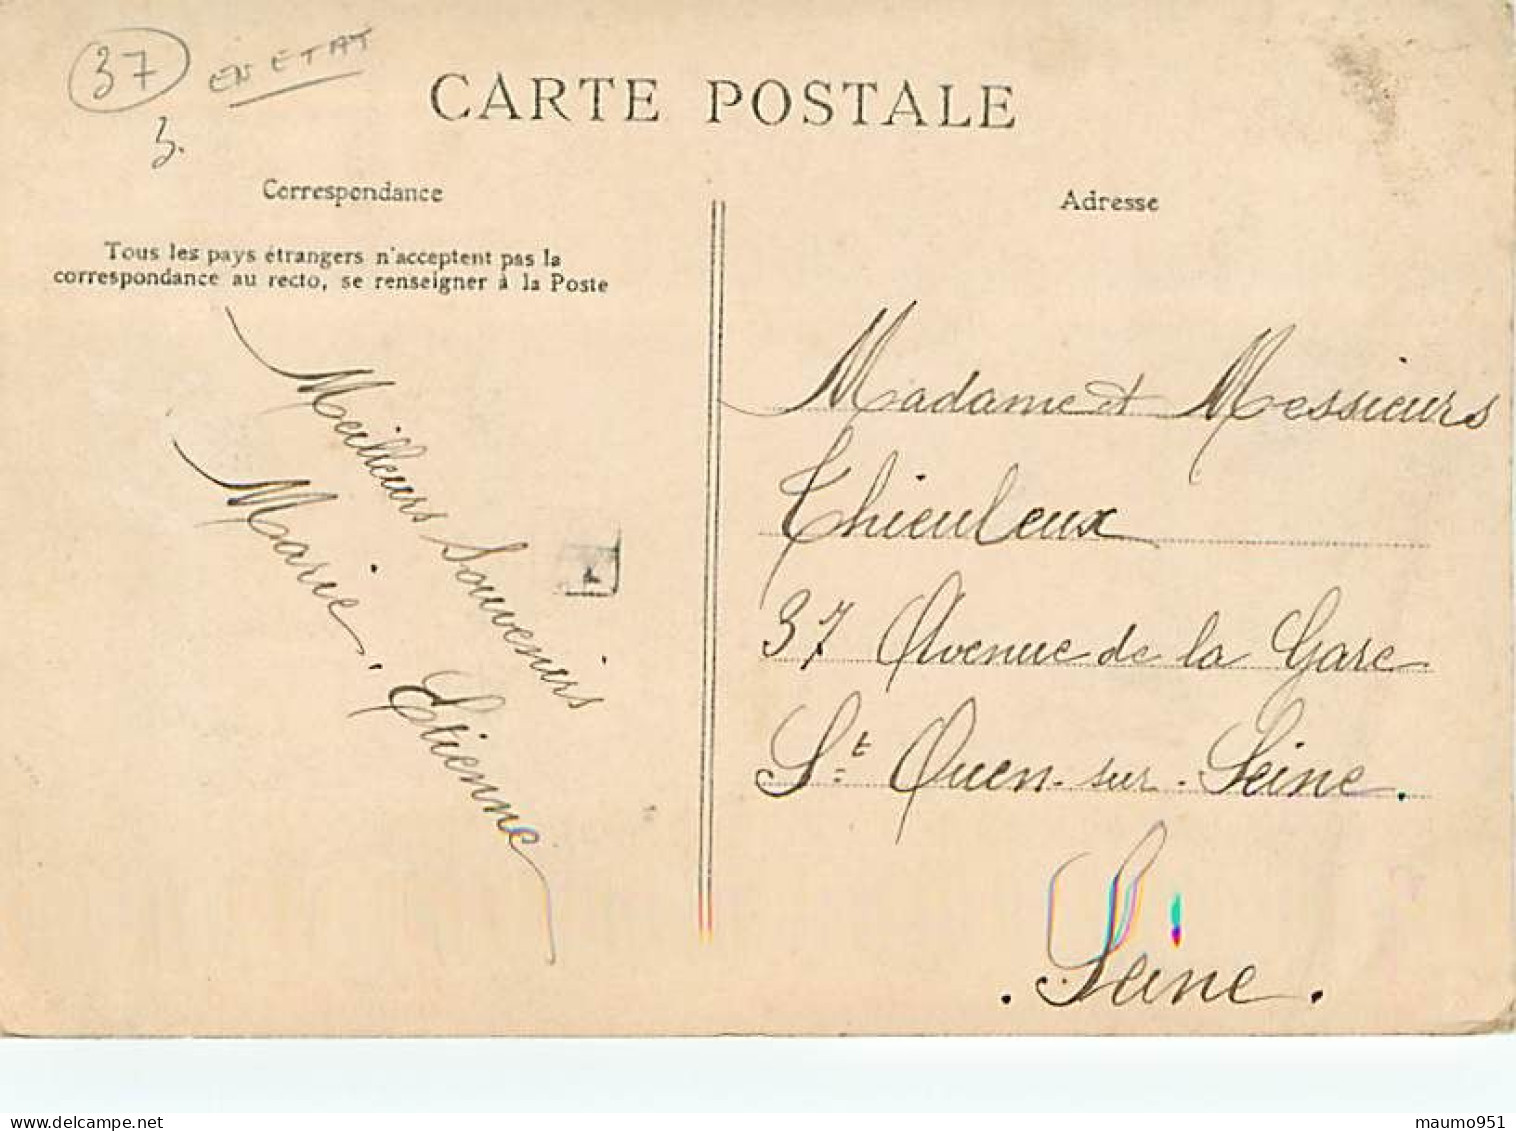 37 EN ÉTAT
3.
CARTE POSTALE
Correspondance
Adresse
Tous les pays étrangers n'acceptent pas la
correspondance au recto, se renseigner à la Poste
Meilleurs Souvenirs
Marie. Etienne
Madame et Messieurs
Thieuleux
37 Avenue de la Gare
St Ouen-sur-Seine.
. Seine.
maumo951